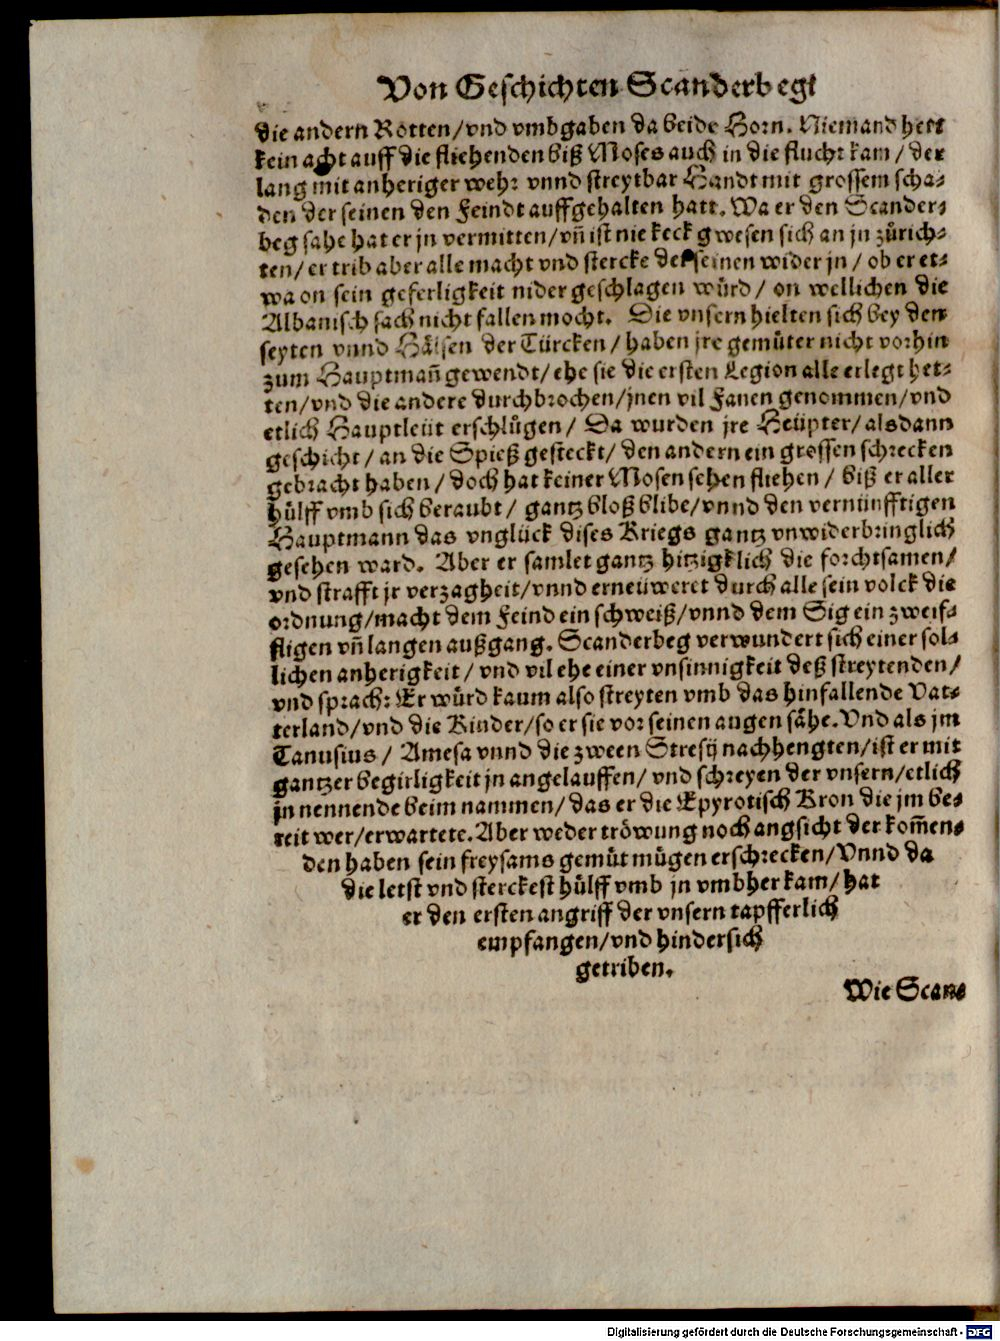 Von Geschichten Scanderbegi
die andern Rotten/vnd vmbgaben da beide Horn. Niemand hett
kein acht auff die fliehenden biß Moses auch in die flucht kam/der
lang mit anheriger wehr vnnd streytbar Handt mit grossem scha-
den der seinen den Feindt auffgehalten hatt. Wa er den Scander-
beg sahe hat er jn vermitten/vñ ist nie keck gwesen sich an jn zůrich-
ten/er trib aber alle macht vnd stercke der seinen wider jn/ob er et-
wa on sein geferligkeit nider geschlagen würd/on wellichen die
Albanisch sach nicht fallen mocht. Die vnsern hielten sich bey den
seyten vnnd Hälsen der Türcken/haben jre gemüter nicht vorhin
zum Hauptmañ gewendt/ehe sie die ersten Legion alle erlegt het-
ten/vnd die andere durchbrochen/jnen vil Fanen genommen/vnd
etlich Hauptleüt erschlügen/Da wurden jre Heüpter/alsdann
geschicht/an die Spieß gesteckt/den andern ein grossen schrecken
gebracht haben/doch hat keiner Mosen sehen fliehen/biß er aller
hülff vmb sich beraubt/gantz bloß blibe/vnnd den vernünfftigen
Hauptmann das vnglück dises Kriegs gantz vnwiderbringlich
gesehen ward. Aber er samlet gantz hitzigklich die forchtsamen/
vnd strafft jr verzagheit/vnnd erneüweret durch alle sein volck die
ordnung/macht dem Feind ein schweiß/vnnd dem Sig ein zweif-
fligen vñ langen außgang. Scanderbeg verwundert sich einer sol-
lichen anherigkeit/vnd vil ehe einer vnsinnigkeit deß streytenden/
vnd sprach: Er würd kaum also streyten vmb das hinfallende Vat-
terland/vnd die Kinder/so er sie vor seinen augen sähe. Vnd als jm
Tanusius/Amesa vnnd die zween Stresij nachhengten/ist er mit
gantzer begirligkeit jn angelauffen/vnd schreyen der vnsern/etlich
jn nennende beim nammen/das er die Epyrotisch Kron die jm be-
reit wer/erwartete. Aber weder tröwung noch angsicht der kom̃en-
den haben sein freysams gemüt mügen erschrecken/Vnnd da
die letst vnd sterckest hülff vmb jn vmbher kam/hat
er den ersten angriff der vnsern tapfferlich
empfangen/vnd hindersich
getriben.
Wie Scan-
Digitalisierung gefördert durch die Deutsche Forschungsgemeinschaft - DFG